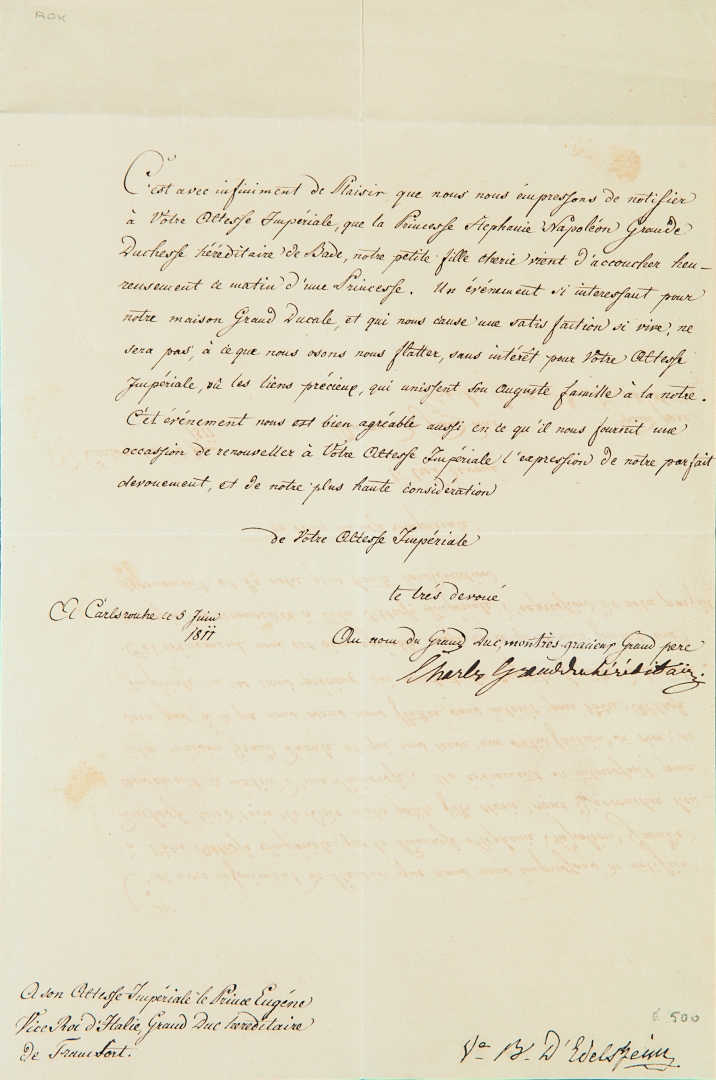 AOK
C'est avec infiniment de Plaisir que nous nous empressons de notifier
à Votre Altesse Impériale, que la Princesse Stephanie Napoléon Grande
Duchesse héréditaire de Bade, notre petite fille cherie vient d'accoucher heu-
reusement ce matin d'une Princesse. Un événement si interessant pour
notre maison Grand Ducale, et qui nous cause une satisfaction si vive, ne
sera pas, à ce que nous osons nous flatter, sans intérêt pour Votre Altesse
Impériale, vû les liens précieux, qui unissent son auguste famille à la notre.
Cet événement nous est bien agréable aussi en ce qu'il nous fournit une
occassion de renouveller à Votre Altesse Impériale l'expression de notre parfait
devouement, et de notre plus haute considération
de Votre Altesse Impériale
le trés devoué
A Carlsrouhe ce 5 Juin
1811
Au nom du Grand Duc, mon très gracieux Grand pere
Charles Grand Duc héréditaire
A son Altesse Impériale le Prince Eugéne
Vice Roi d'Italie, Grand Duc héreditaire
de Francfort.
£ 500
Vt. B. D'Edelsheim